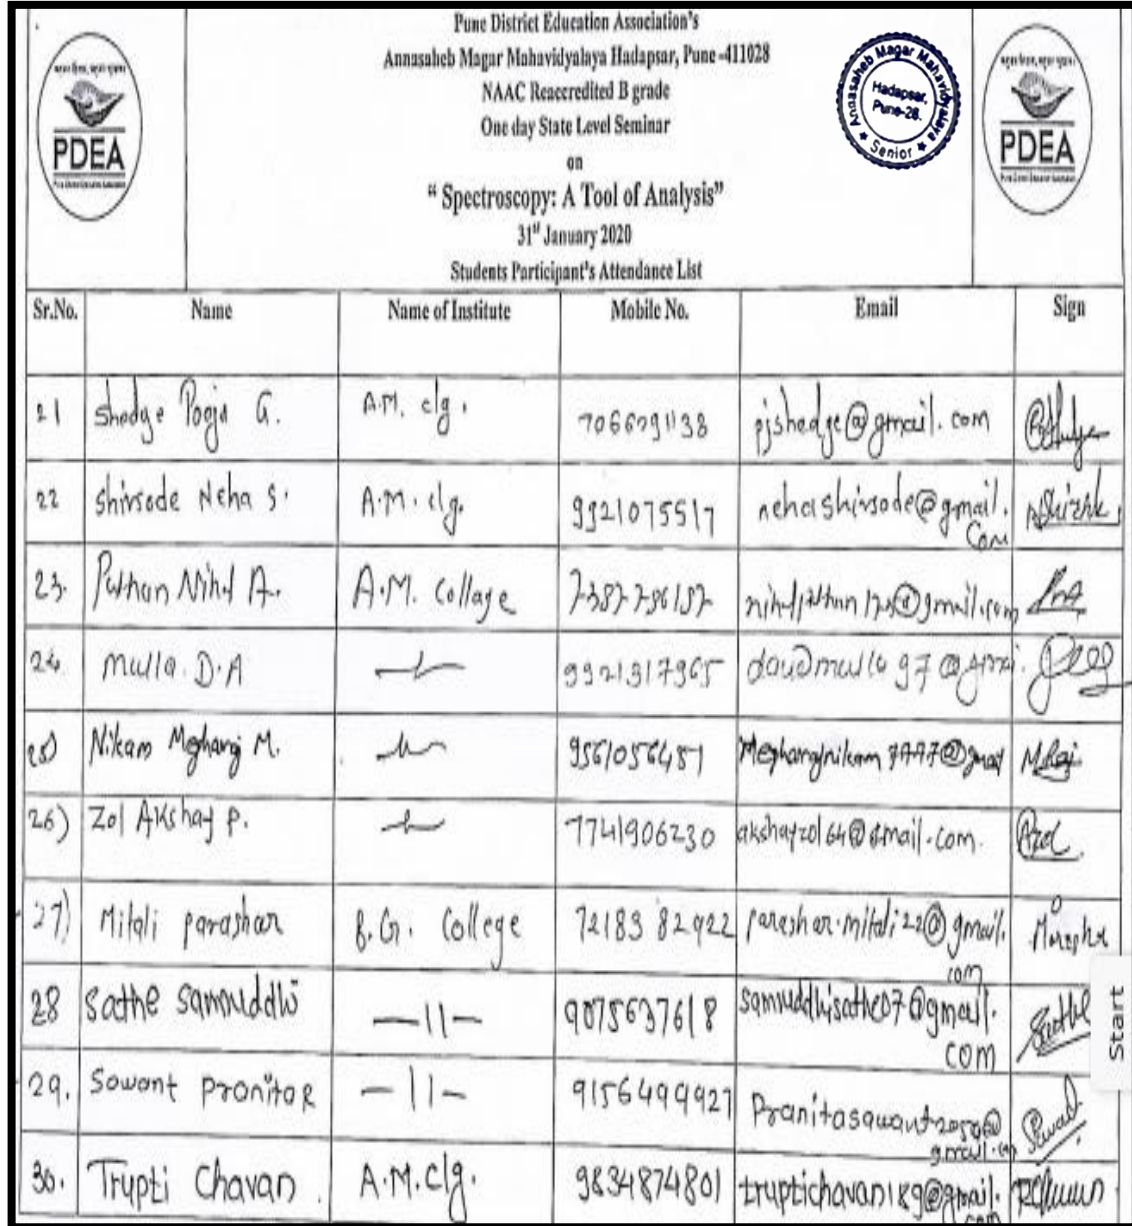 PDEA
Pune District Education Association's
Annasaheb Magar Mahavidyalaya Hadapsar, Pune-411028
NAAC Reaccredited B grade
One day State Level Seminar
on
" Spectroscopy: A Tool of Analysis"
31st January 2020
Students Participant's Attendance List
Annasaheb Magar Mahavidyalaya
Hadapsar,
Pune-28.
★ Senior ★
PDEA
Sr.No. Name Name of Institute Mobile No. Email Sign
21 Shedge Pooja G. A.M. clg. 7066091138 pjshedge@gmail.com
22 Shirsode Neha S. A.M. clg. 9921075517 nehashirsode@gmail.
Com
23. Pathan Nihal A. A.M. Collage 7387796157
24. Mulla. D.A 9921317965
25) Nikam Meghraj M. 9561056451
26) Zol Akshay P. 7741906230 akshayzol64@gmail.com.
27) Mitali parashar B.G. College 72183 82922 parashar.mitali22@gmail.
com
28 Sathe Samruddhi —11— 9075637618 samruddhisathe07@gmail.
com
29. Sawant Pranita R —11— 9156499927 Pranitasawant2050@
gmail.com
30. Trupti Chavan A.M.clg. 9834874801 truptichavan189@gmail.
com
Start